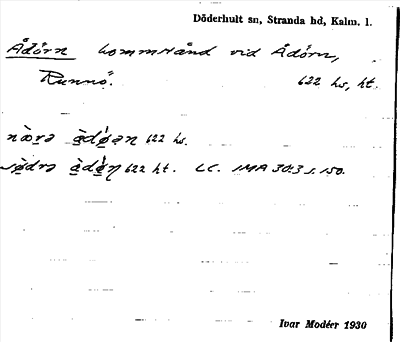 Döderhult sn, Stranda hd, Kalm. l.
Ådörn hommstånd vid Ådörn,
Runnö. 622 hs, ht.
næ̀rə å̀dø̀ən 622 hs.
sø̀drə å̀dø̀ņ 622 ht. LC. IMA 30:3 s. 150.
Ivar Modéer 1930